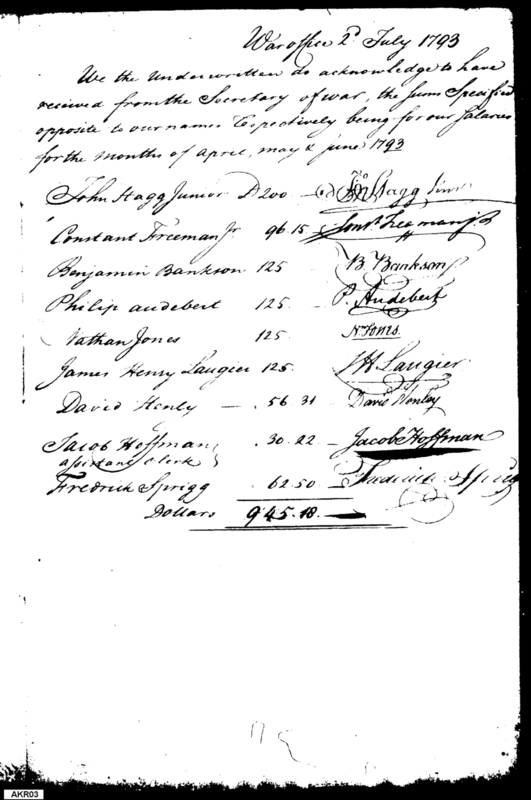 War office 2d July 1793
We the underwritten do acknowledge to have
received from the Secretary of war, the sums Specified
opposite to our names Respectively being for our Salaries
for the months of april, may & june 1793
John Stagg Junior D 200 — Jno Stagg Junr
Constant Freeman Jr 96 15 Const Freeman Jr
Benjamin Bankson 125 B. Bankson
Philip audebert 125 P. Audebert
Nathan Jones 125 N Jones
James Henry Laugier 125. JH Laugier
David Henly — . 56 31 — David Henley
Jacob Hoffman . 30. 22 — Jacob Hoffman
assistant clerk
Fredrick Sprigg 62.50 — Frederick Sprigg
Dollars 945.18. —
AKR03